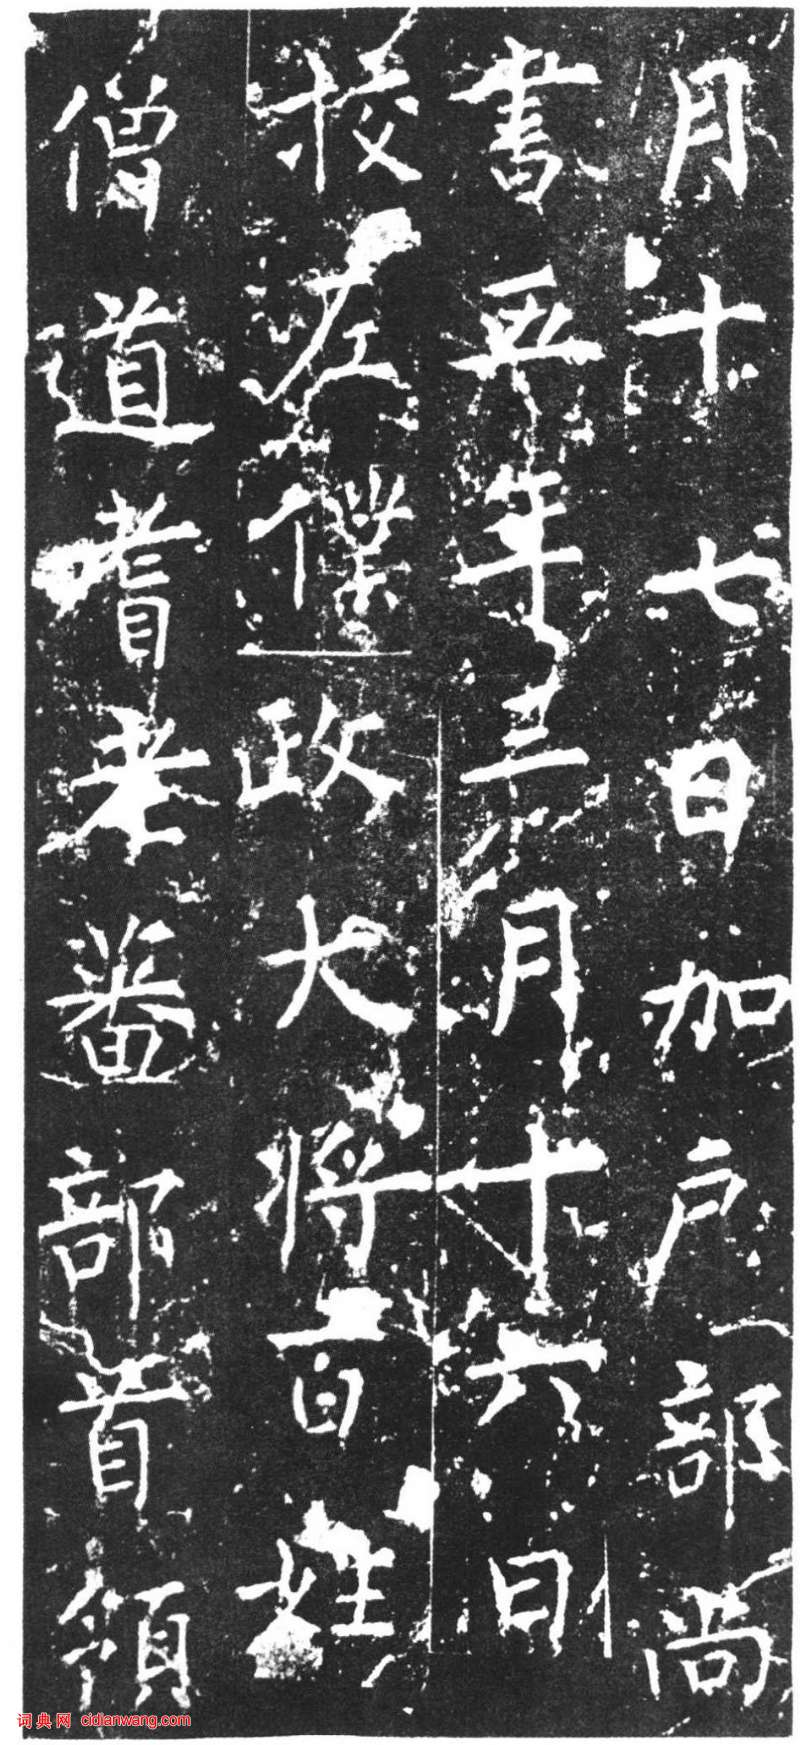 月十七日加户部尚
書五年三月十六日
校左僕政大将百姓
僧道耆老蕃部首領
词典网 cidianwang.com